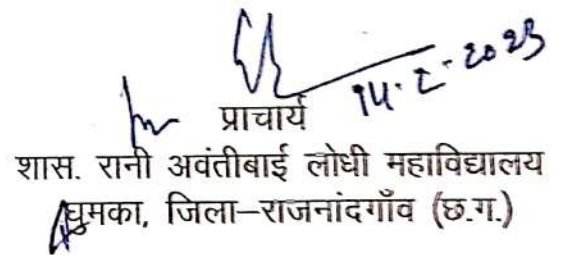 14.2.2023
प्राचार्य
शास. रानी अवंतीबाई लोधी महाविद्यालय
घुमका, जिला–राजनांदगाँव (छ.ग.)